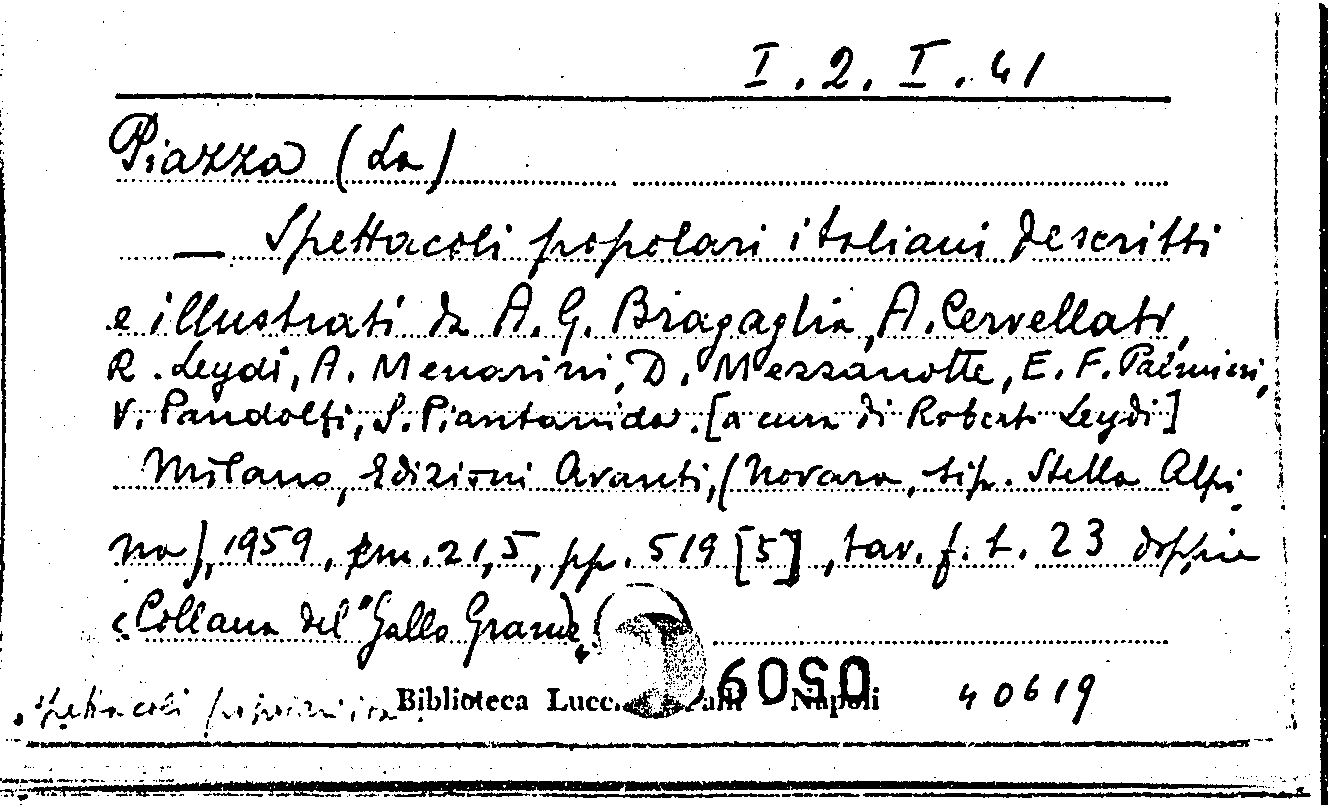 I.2.I.41
Piazza (La)
— Spettacoli popolari italiani descritti
e illustrati da A. G. Bragaglia, A. Cervellati,
R. Leydi, A. Menarini, D. Mezzanotte, E. F. Palmieri,
V. Pandolfi, S. Piantanida. [a cura di Roberto Leydi]
Milano, Edizioni Avanti, (Novara, tip. Stella Alpi
na), 1959, cm. 21,5, pp. 519 [5], tav. f. t. 23 doppie
(Collana del "Gallo Grande")
Spettacoli Biblioteca Napoli 40619
0509